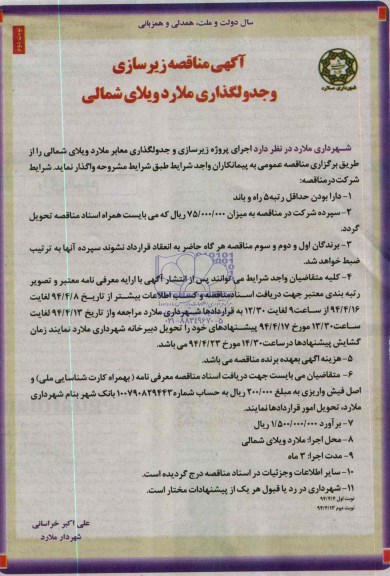 سال دولت و ملت، همدلی و همزبانی
نوبت دوم
شهرداری ملارد
آگهی مناقصه زیرسازی
و جدولگذاری ملارد ویلای شمالی
شهرداری ملارد در نظر دارد اجرای پروژه زیرسازی و جدولگذاری معابر ملارد ویلای شمالی را از
طریق برگزاری مناقصه عمومی به پیمانکاران واجد شرایط طبق شرایط مشروحه واگذار نماید. شرایط
شرکت در مناقصه:
۱- دارا بودن حداقل رتبه ۵ راه و باند
۲- سپرده شرکت در مناقصه به میزان ۷۵/۰۰۰/۰۰۰ ریال که می بایست همراه اسناد مناقصه تحویل
گردد.
۳- برندگان اول و دوم و سوم مناقصه هر گاه حاضر به انعقاد قرارداد نشوند سپرده آنها به ترتیب
ضبط خواهد شد.
۴- کلیه متقاضیان واجد شرایط می توانند پس از انتشار آگهی با ارایه معرفی نامه معتبر و تصویر
رتبه بندی معتبر جهت دریافت اسناد مناقصه و کسب اطلاعات بیشتر از تاریخ ۹۴/۴/۸ لغایت
۹۴/۴/۱۶ از ساعت ۹ لغایت ۱۲/۳۰ به قراردادها شهرداری ملارد مراجعه واز تاریخ ۹۴/۴/۱۳ لغایت
ساعت ۱۳/۳۰ مورخ ۹۴/۴/۱۷ پیشنهادهای خود را تحویل دبیرخانه شهرداری ملارد نمایند زمان
گشایش پیشنهادها در ساعت ۱۴/۳۰ مورخ ۹۴/۴/۲۳ می باشد.
۵- هزینه آگهی بعهده برنده مناقصه می باشد.
۶- متقاضیان می بایست جهت دریافت اسناد مناقصه معرفی نامه (بهمراه کارت شناسایی ملی) و
اصل فیش واریزی به مبلغ ۲۰۰/۰۰۰ ریال به حساب شماره ۱۰۰۷۹۰۸۲۹۴۴۳ بانک شهر بنام شهرداری
ملارد، تحویل امور قراردادها نمایند.
۷- برآورد ۱/۵۰۰/۰۰۰/۰۰۰ ریال
۸- محل اجرا: ملارد ویلای شمالی
۹- مدت اجرا: ۳ ماه
۱۰- سایر اطلاعات وجزئیات در اسناد مناقصه درج گردیده است.
۱۱- شهرداری در رد یا قبول هر یک از پیشنهادات مختار است.
نوبت اول ۹۴/۴/۶
نوبت دوم ۹۴/۴/۱۳
علی اکبر خراسانی
شهردار ملارد